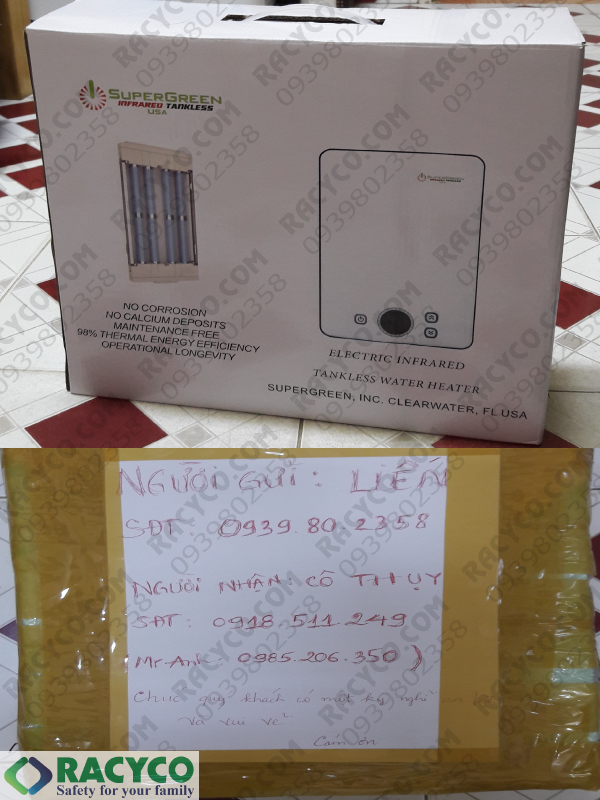 SUPERGREEN
INFRARED TANKLESS
USA
SUPERGREEN
INFRARED TANKLESS
NO CORROSION
NO CALCIUM DEPOSITS
MAINTENANCE FREE
98% THERMAL ENERGY EFFICIENCY
OPERATIONAL LONGEVITY
ELECTRIC INFRARED
TANKLESS WATER HEATER
SUPERGREEN, INC. CLEARWATER, FL USA
NGƯỜI GỬI: LIÊN
SĐT 0939.80.2358
NGƯỜI NHẬN: CÔ THỤY
SĐT: 0918.511.249
Mr-Anh: 0985.206.350)
Chúc quý khách có một kỳ nghỉ an
và vui vẻ
Cám ơn
RACYCO
Safety for your family
RACYCO.COM
0939802358